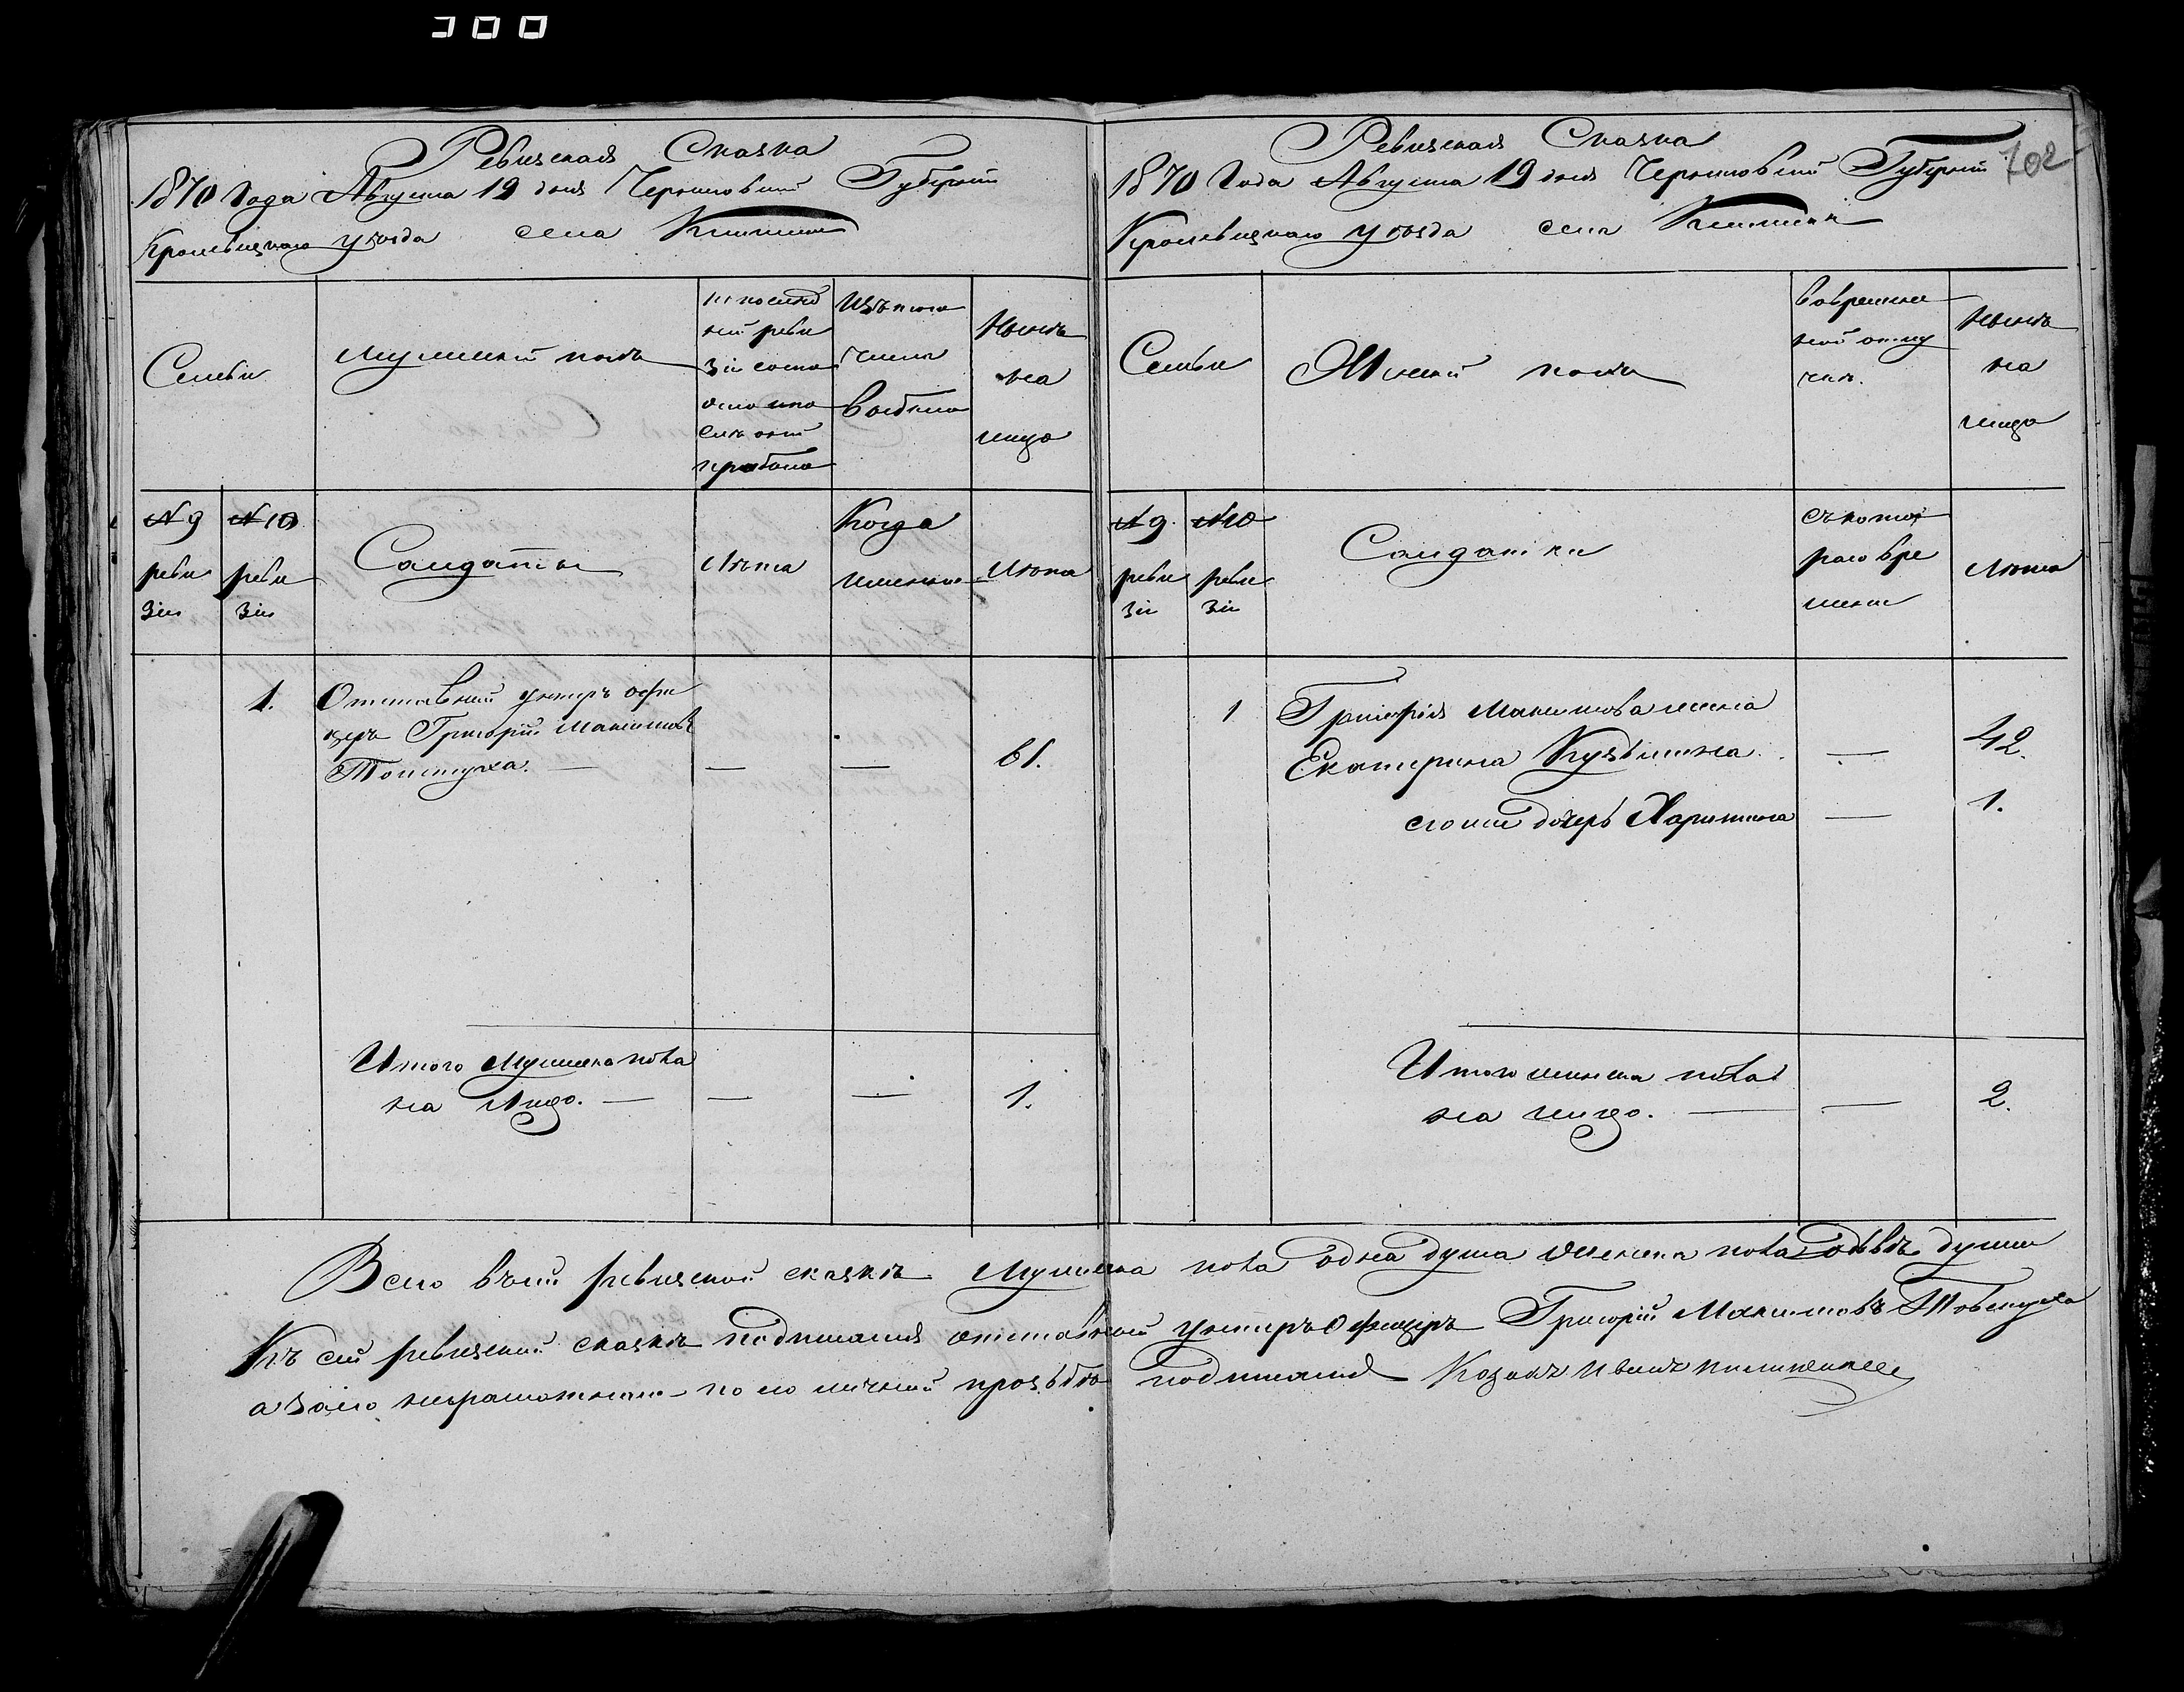 300
Ревизская Сказка
1870 Года Августа 19 дня Черниговской Губерніи
Кролевецкаго уѣзда села
Семьи
мужескій полъ
по послѣд
ней реви
зіи состо
яло и по
слѣ оной
прибыло
Изъ того
числа
выбыло
Нынѣ
на
лицо
№ 9
реви
зіи
№ 10
реви
зіи
Солдаты
Лѣта
Когда
именно
Лѣта
1.
Отставной унтеръ офи
церъ Григорій Максимовъ
Товстуха. — — — 61.
Итого мужеска пола
на лицо. — — — 1.
702
Ревизская Сказка
1870 Года Августа 19 дня Черниговской Губерніи
Кролевецкаго уѣзда села
Семьи
Женскій полъ
во времен
ной отлу
чкѣ.
Нынѣ
на
лицо
№ 9.
реви
зіи
№ 10
реви
зіи
Солдатки
съ кото
раго вре
мени
Лѣта
1
Григорія Максимова жена
Екатерина Кузьмина — 42.
его жи дочерь Харитина — 1.
Итого женска пола
на лицо. — — 2.
Всего въ сей ревизской сказкѣ мужеска пола одна душа женска пола двѣ души
Къ сей ревизской сказкѣ подписался отставной унтеръ Офицеръ Григорій Максимовъ Товстуха
а за его неграмотнаго по его личной прозьбѣ подписался Козакъ Иванъ